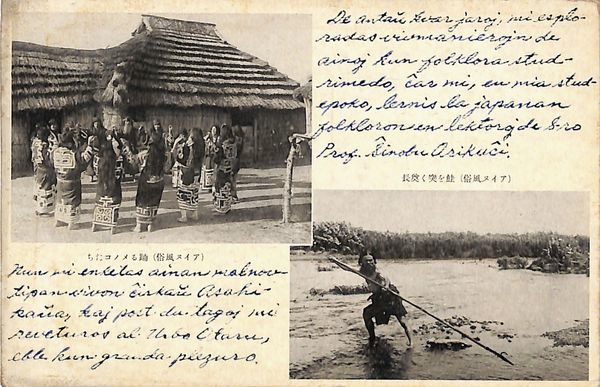 De antaŭ kvar jaroj, mi esplo-
radas vivmanierojn de
ainoj kun folklora stud-
rimedo, ĉar mi, en mia stud-
epoko, lernis la japanan
folkloron en de S-ro
Prof. Ŝinobu Orikuĉi.
（アイヌ風俗）鮭を突く酋長
（アイヌ風俗）踊るメノコたち
Nun mi enketas ainan malnov-
tipan vivon ĉirkaŭ Asahi-
kaŭa, kaj post du tagoj mi
reveturos al Urbo Otaru,
eble kun granda plezuro.